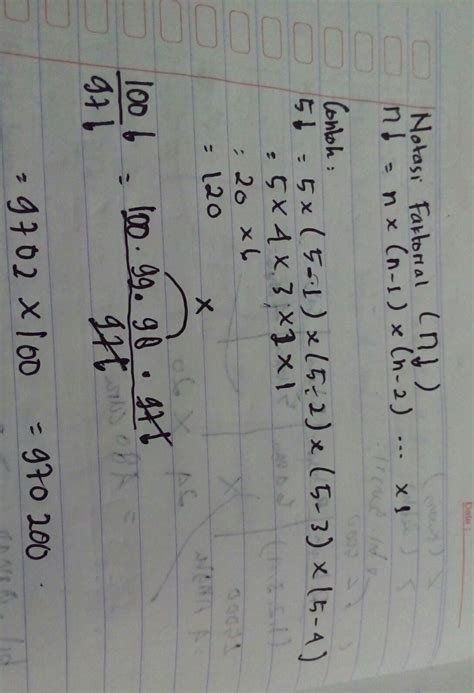 Notasi Faktorial (n!)
n! = n x (n-1) x (n-2) ... x 1
Contoh:
5! = 5 x (5-1) x (5-2) x (5-3) x (5-4)
= 5 x 4 x 3 x 2 x 1
= 20 x 6
= 120
x
100! = 100. 99. 98. 97!
97! 97!
= 9702 x 100 = 970200.